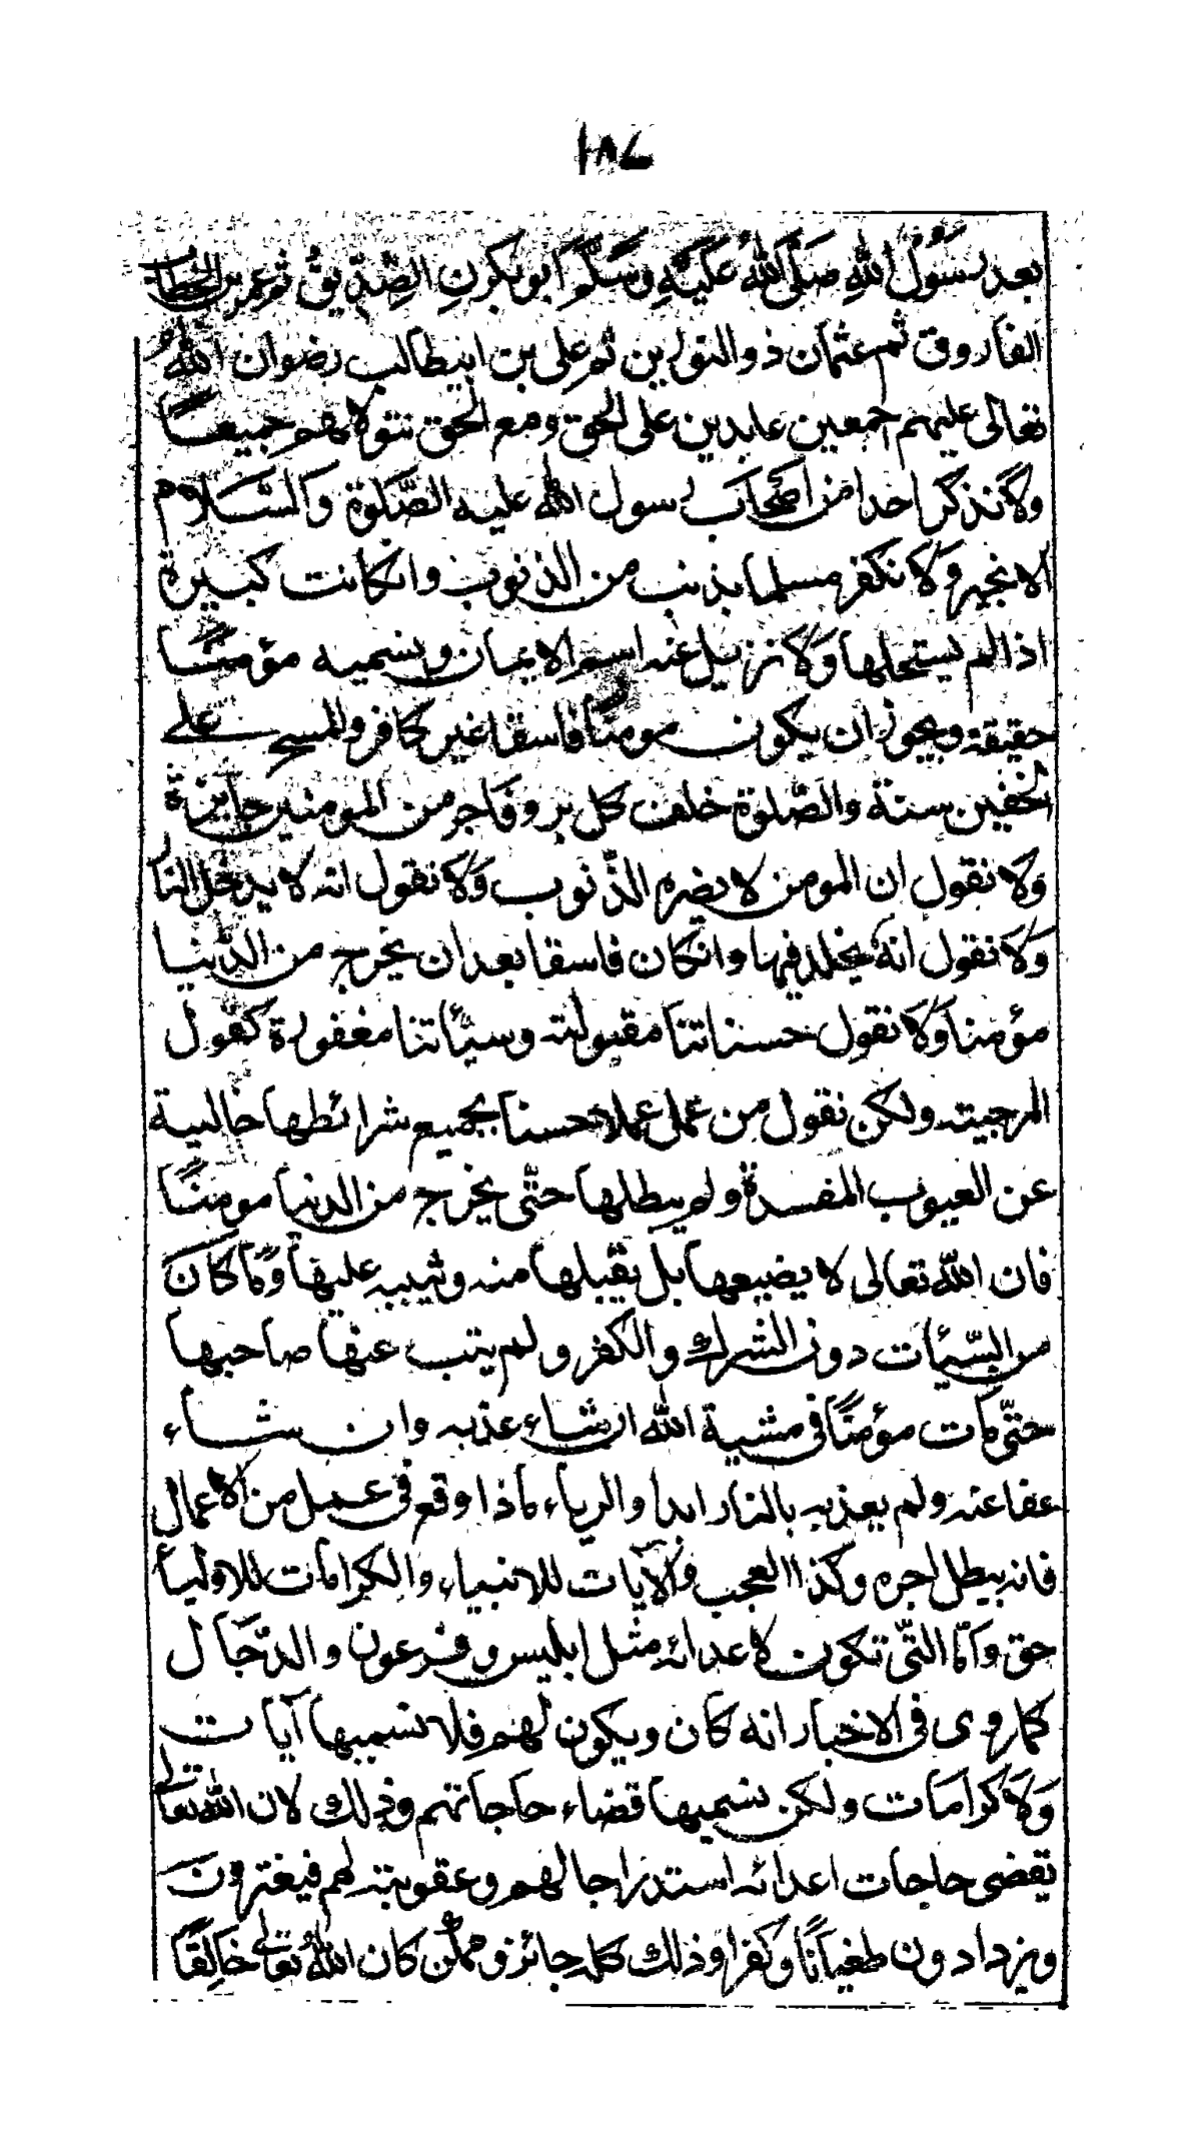 ١٨٤
بعد رسول الله صلى الله عليه وسلم ابو بكرن الصديق ثم عمر بن الخطاب
الفاروق ثم عثمان ذوالنورين ثم على بن ابيطالب رضوان الله
تعالى عليهم اجمعين عابدين على الحق ومع الحق نتولاهم جميعا
ولا نذكر احدا من اصحاب رسول الله عليه الصلوة والسلام
الا بخير ولا نكفر مسلما بذنب من الذنوب وانكانت كبيرة
اذا لم يستحلها ولا نزيل عنه اسم الايمان ونسميه مؤمنًا
حقيقة ويجوز ان يكون مومنًا فاسقا غير كافر والمسح على
الخفين سنة والصلوة خلف كل بر وفاجر من المومنين جايزة
ولا نقول ان المومن لا يضره الذنوب ولا نقول انه لا يدخل النار
ولا نقول انه يخلد فيها وانكان فاسقا بعد ان يخرج من الدنيا
مؤمنا ولا نقول حسناتنا مقبولته وسيأتنا مغفورة كقول
المرجيته ولكن نقول من عمل عملا حسنا بجميع شرائطها خالية
عن العيوب المفسدة ولم يبطلها حتى يخرج من الدنيا مومنًا
فان الله تعالى لا يضيعها بل يقبلها منه ويثيبه عليها وما كان
من السيئات دون الشرك والكفر ولم يتب عنها صاحبها
حتى مات مؤمنًا فى مشية الله ان شاء عذبه وان شاء
عفا عنه ولم يعذبه بالنار ابدا والرياء ماذا وقع فى عمل من الاعمال
فانه يبطل اجره وكذا العجب والآيات للانبياء والكرامات للاوليأ
حق واما التى تكون لاعدائه مثل ابليس وفرعون والدجال
كما روى فى الاخبار انه كان ويكون لهم فلا نسميها آيات
ولا كرامات ولكن نسميها قضاء حاجاتهم وذلك لان الله تعالى
يقضى حاجات اعدائه استدراجا لهم وعقوبته لهم فيغترون
ويزدادون طغيانًا وكفرا وذلك كله جائز وممكن كان الله تعالى خالقًا